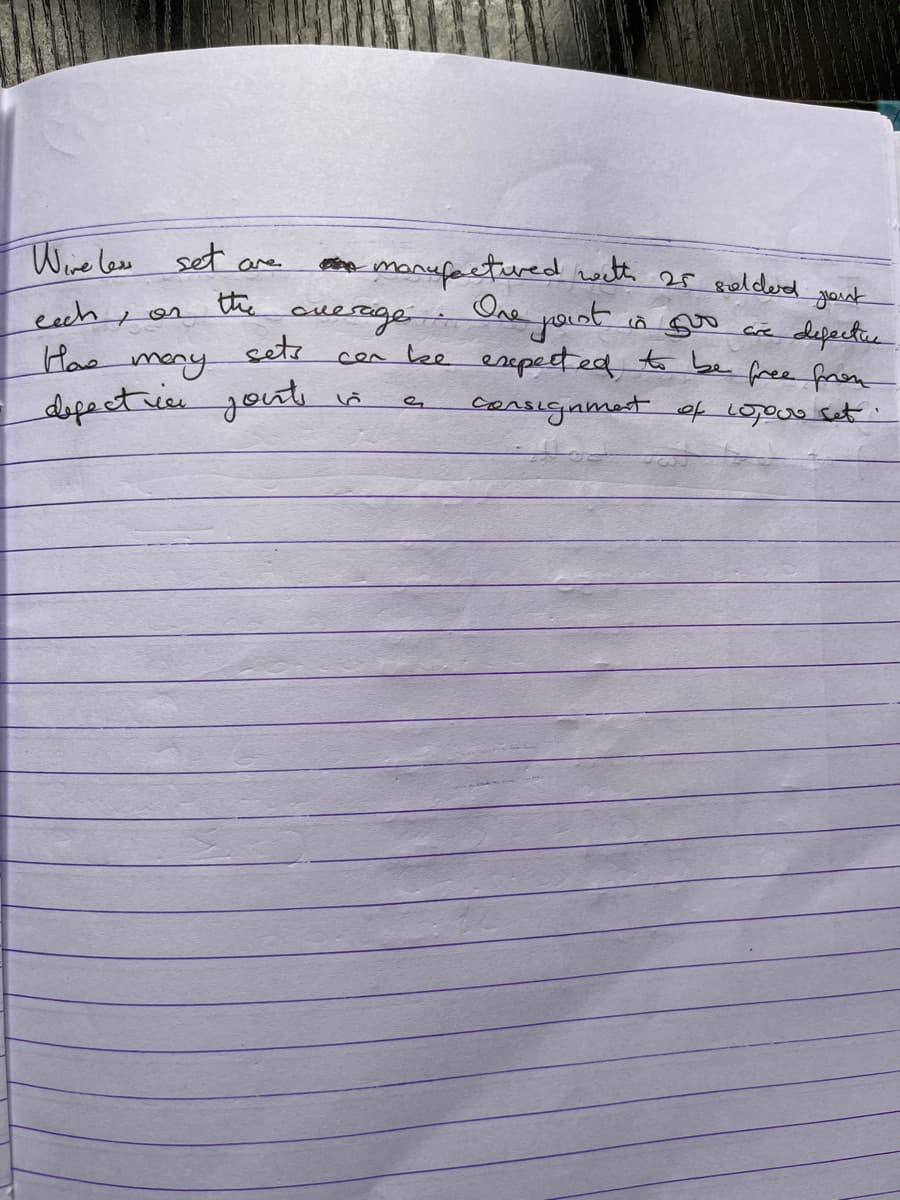 Wireless set are manufactured with 25 solderd joint
each, on the average. One joint in 500 are defective
How many sets can bee expected to be free from
defective joints in a consignment of 10,000 set.